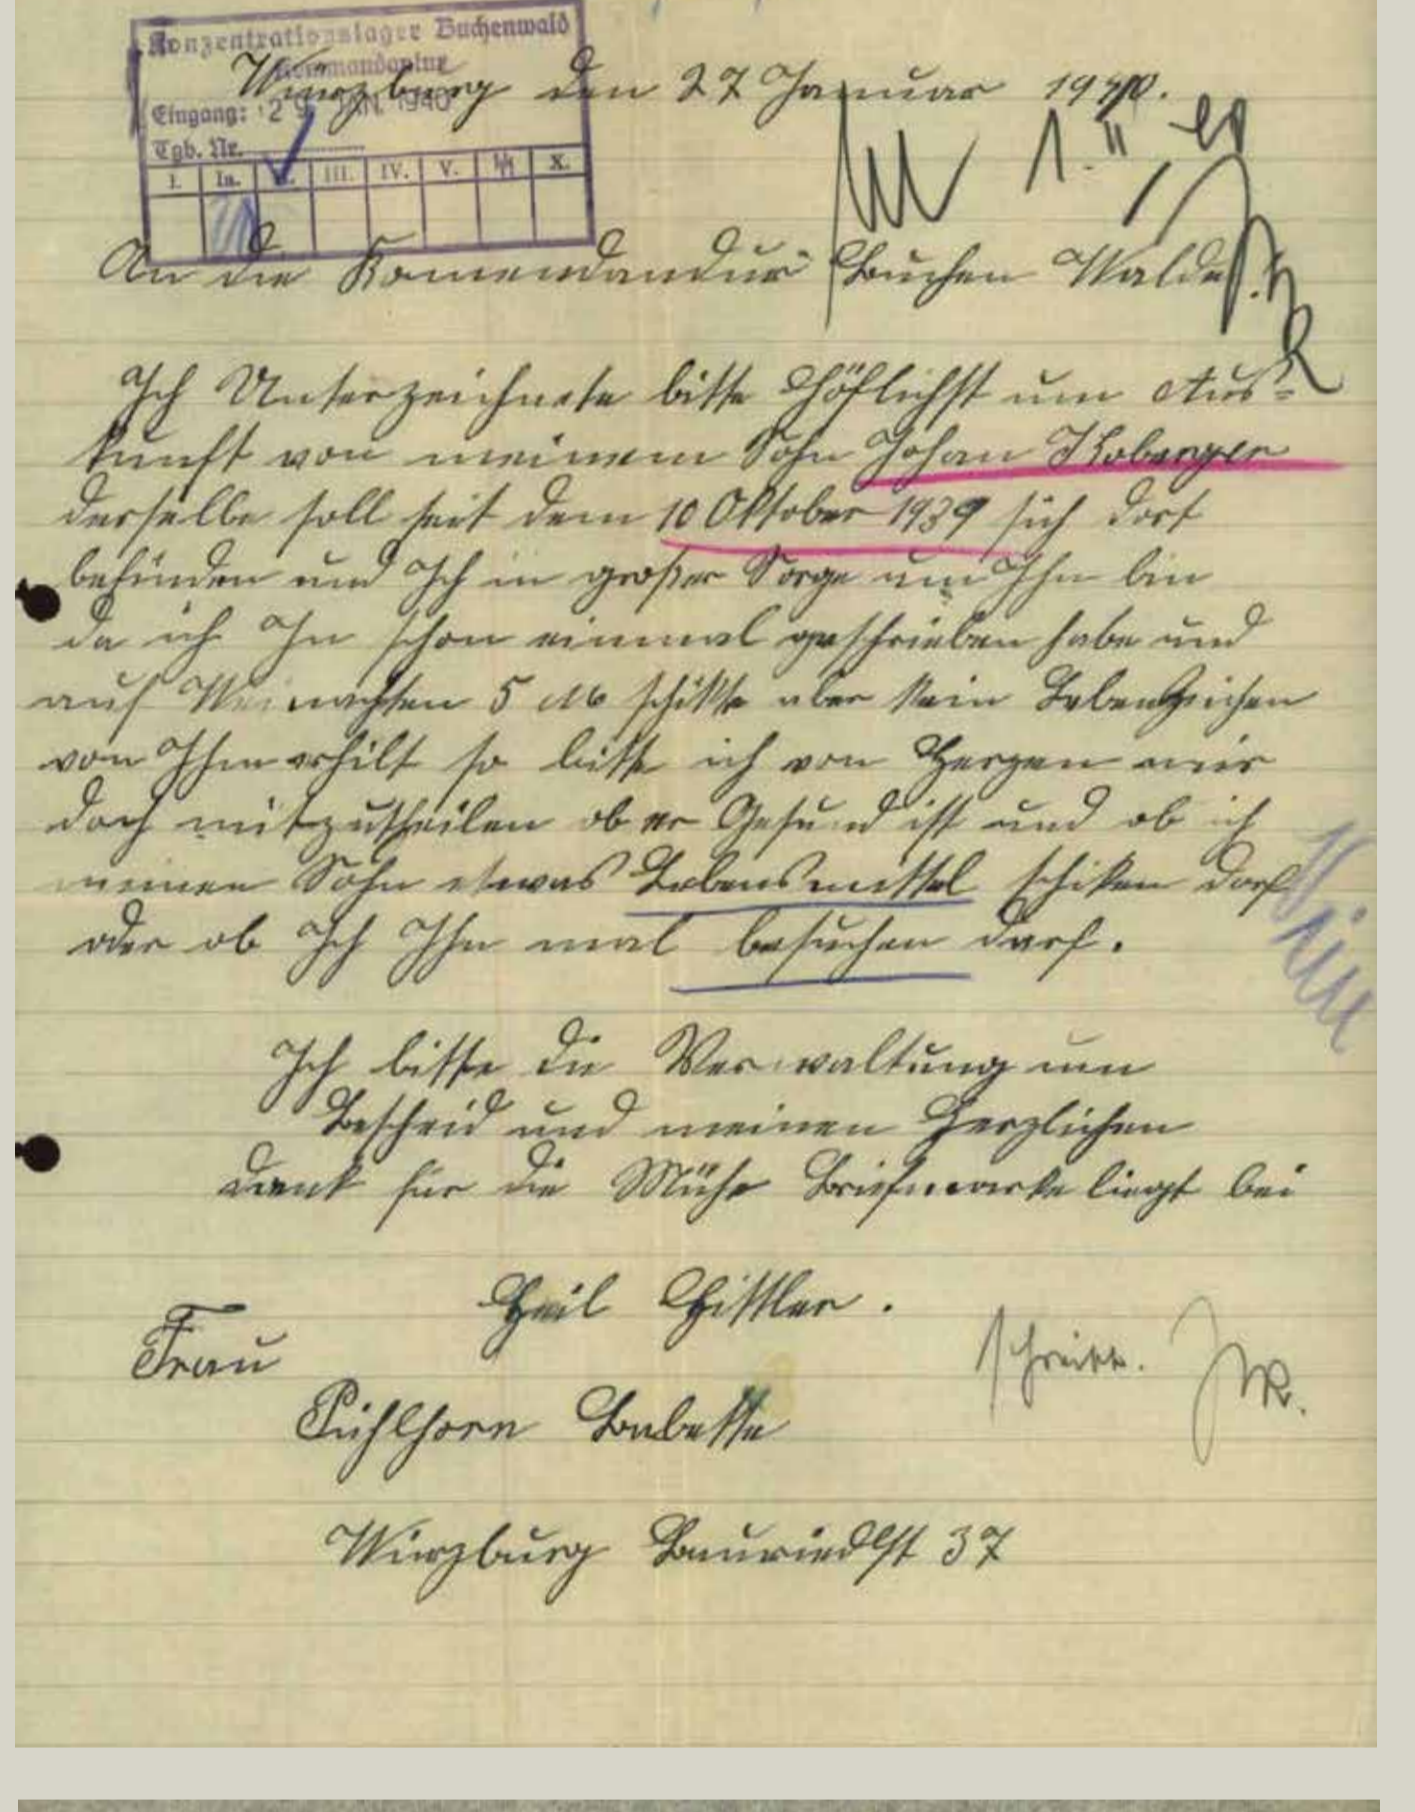 Konzentrationslager Buchenwald
Kommandantur
Eingang: 29. JAN. 1940
Tgb. Nr.
I. Ia. II. III. IV. V. ᛋᛋ X.
Würzburg den 27 Januar 1940.
1. II 40
An die Komendandur Buchen Walde
Ich Unterzeichnete bitte Höflichst um Aus=
kunft von meinem Sohn Johan Koberger
derselbe soll seit dem 10 Oktober 1939 sich dort
befinden und Ich in großer Sorge um Ihn bin
da ich Ihn schon einmal geschrieben habe und
auf Weinachten 5 M schikte aber kein Lebenszeichen
von Ihm erhilt so bitte ich von Herzen mir
doch mitzutheilen ob er Gesund ist und ob ich
meinen Sohn etwas Lebensmittel schiken darf
oder ob Ich Ihn mal besuchen darf.
Ich bitte die Verwaltung um
Bescheid und meinen Herzlichen
Dank für die Mühe Briefmarke liegt bei
Heil Hittler.
Frau
schreibt.
Pühlhorn Babette
Würzburg Bauriedlst 37